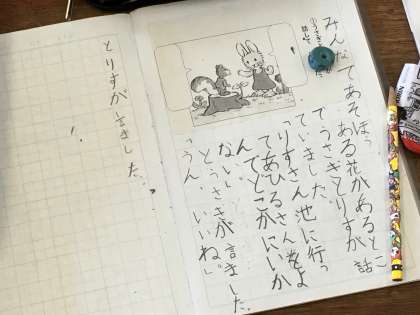 みんなであそぼう
ある花があるとこ
でうさぎとりすが話
ていました。
「りすさん池に行っ
てあひるさんをよ
んでどこかにいか
ない」
とうさぎが言ました。
「うん、いいね。」
とりすが言ました。